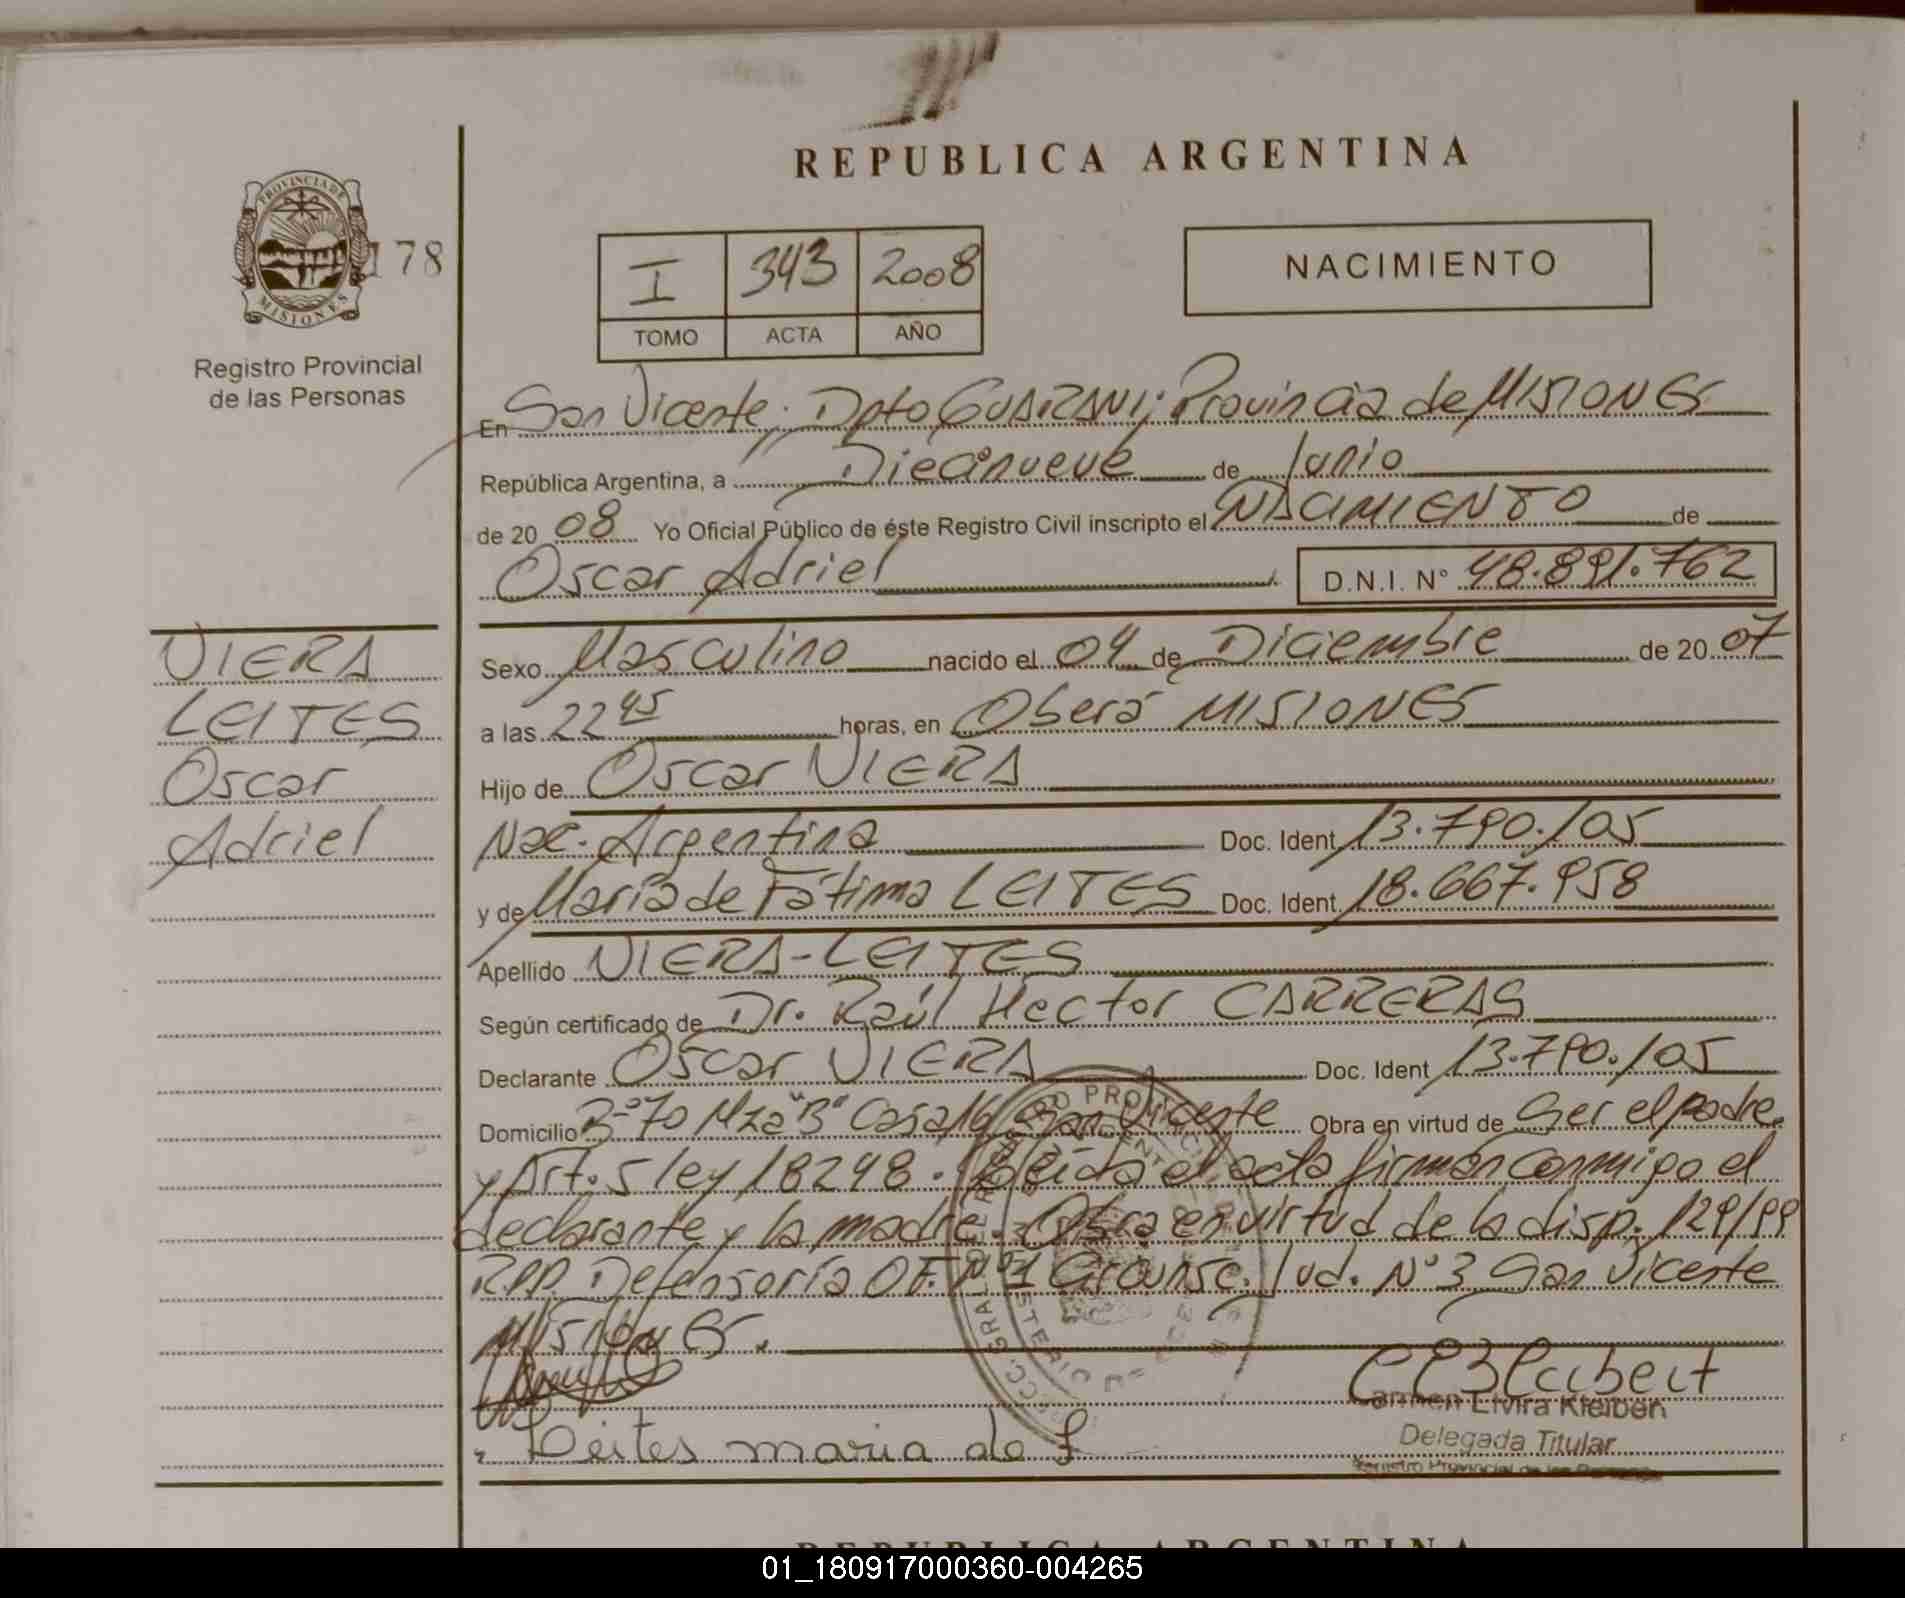 REPUBLICA ARGENTINA
PROVINCIA DE MISIONES
178
Registro Provincial
de las Personas
I 343 2008
TOMO ACTA AÑO
NACIMIENTO
En San Vicente; Dpto GUARANI; Provincia de MISIONES
República Argentina, a Diecinueve de Junio
de 2008 Yo Oficial Público de éste Registro Civil inscripto el NACIMIENTO de
Oscar Adriel D.N.I. N° 48.891.762
VIERA
LEITES
Oscar
Adriel
Sexo Masculino nacido el 04 de Diciembre de 2007
a las 22 45 horas, en Oberá MISIONES
Hijo de Oscar VIERA
Nac. Argentina Doc. Ident. 13.790.105
y de María de Fátima LEITES Doc. Ident. 18.667.958
Apellido VIERA-LEITES
Según certificado de Dr. Raúl Hector CARRERAS
Declarante Oscar VIERA Doc. Ident 13.790.105
Domicilio B-°70 Mza "B" Casa 16 San Vicente Obra en virtud de Ser el padre
y Art. 5 ley 18248. Leída el acta firman conmigo el
declarante y la madre. Obra en virtud de la disp. 129/99
R.P.P. Defensoría OF. N°1 Circunsc. Jud. N°3 San Vicente
MISIONES.
Leites maria de f
Carmen Elvira Kleiben
Delegada Titular
Registro Provincial de las Personas
REPUBLICA ARGENTINA
01_180917000360-004265